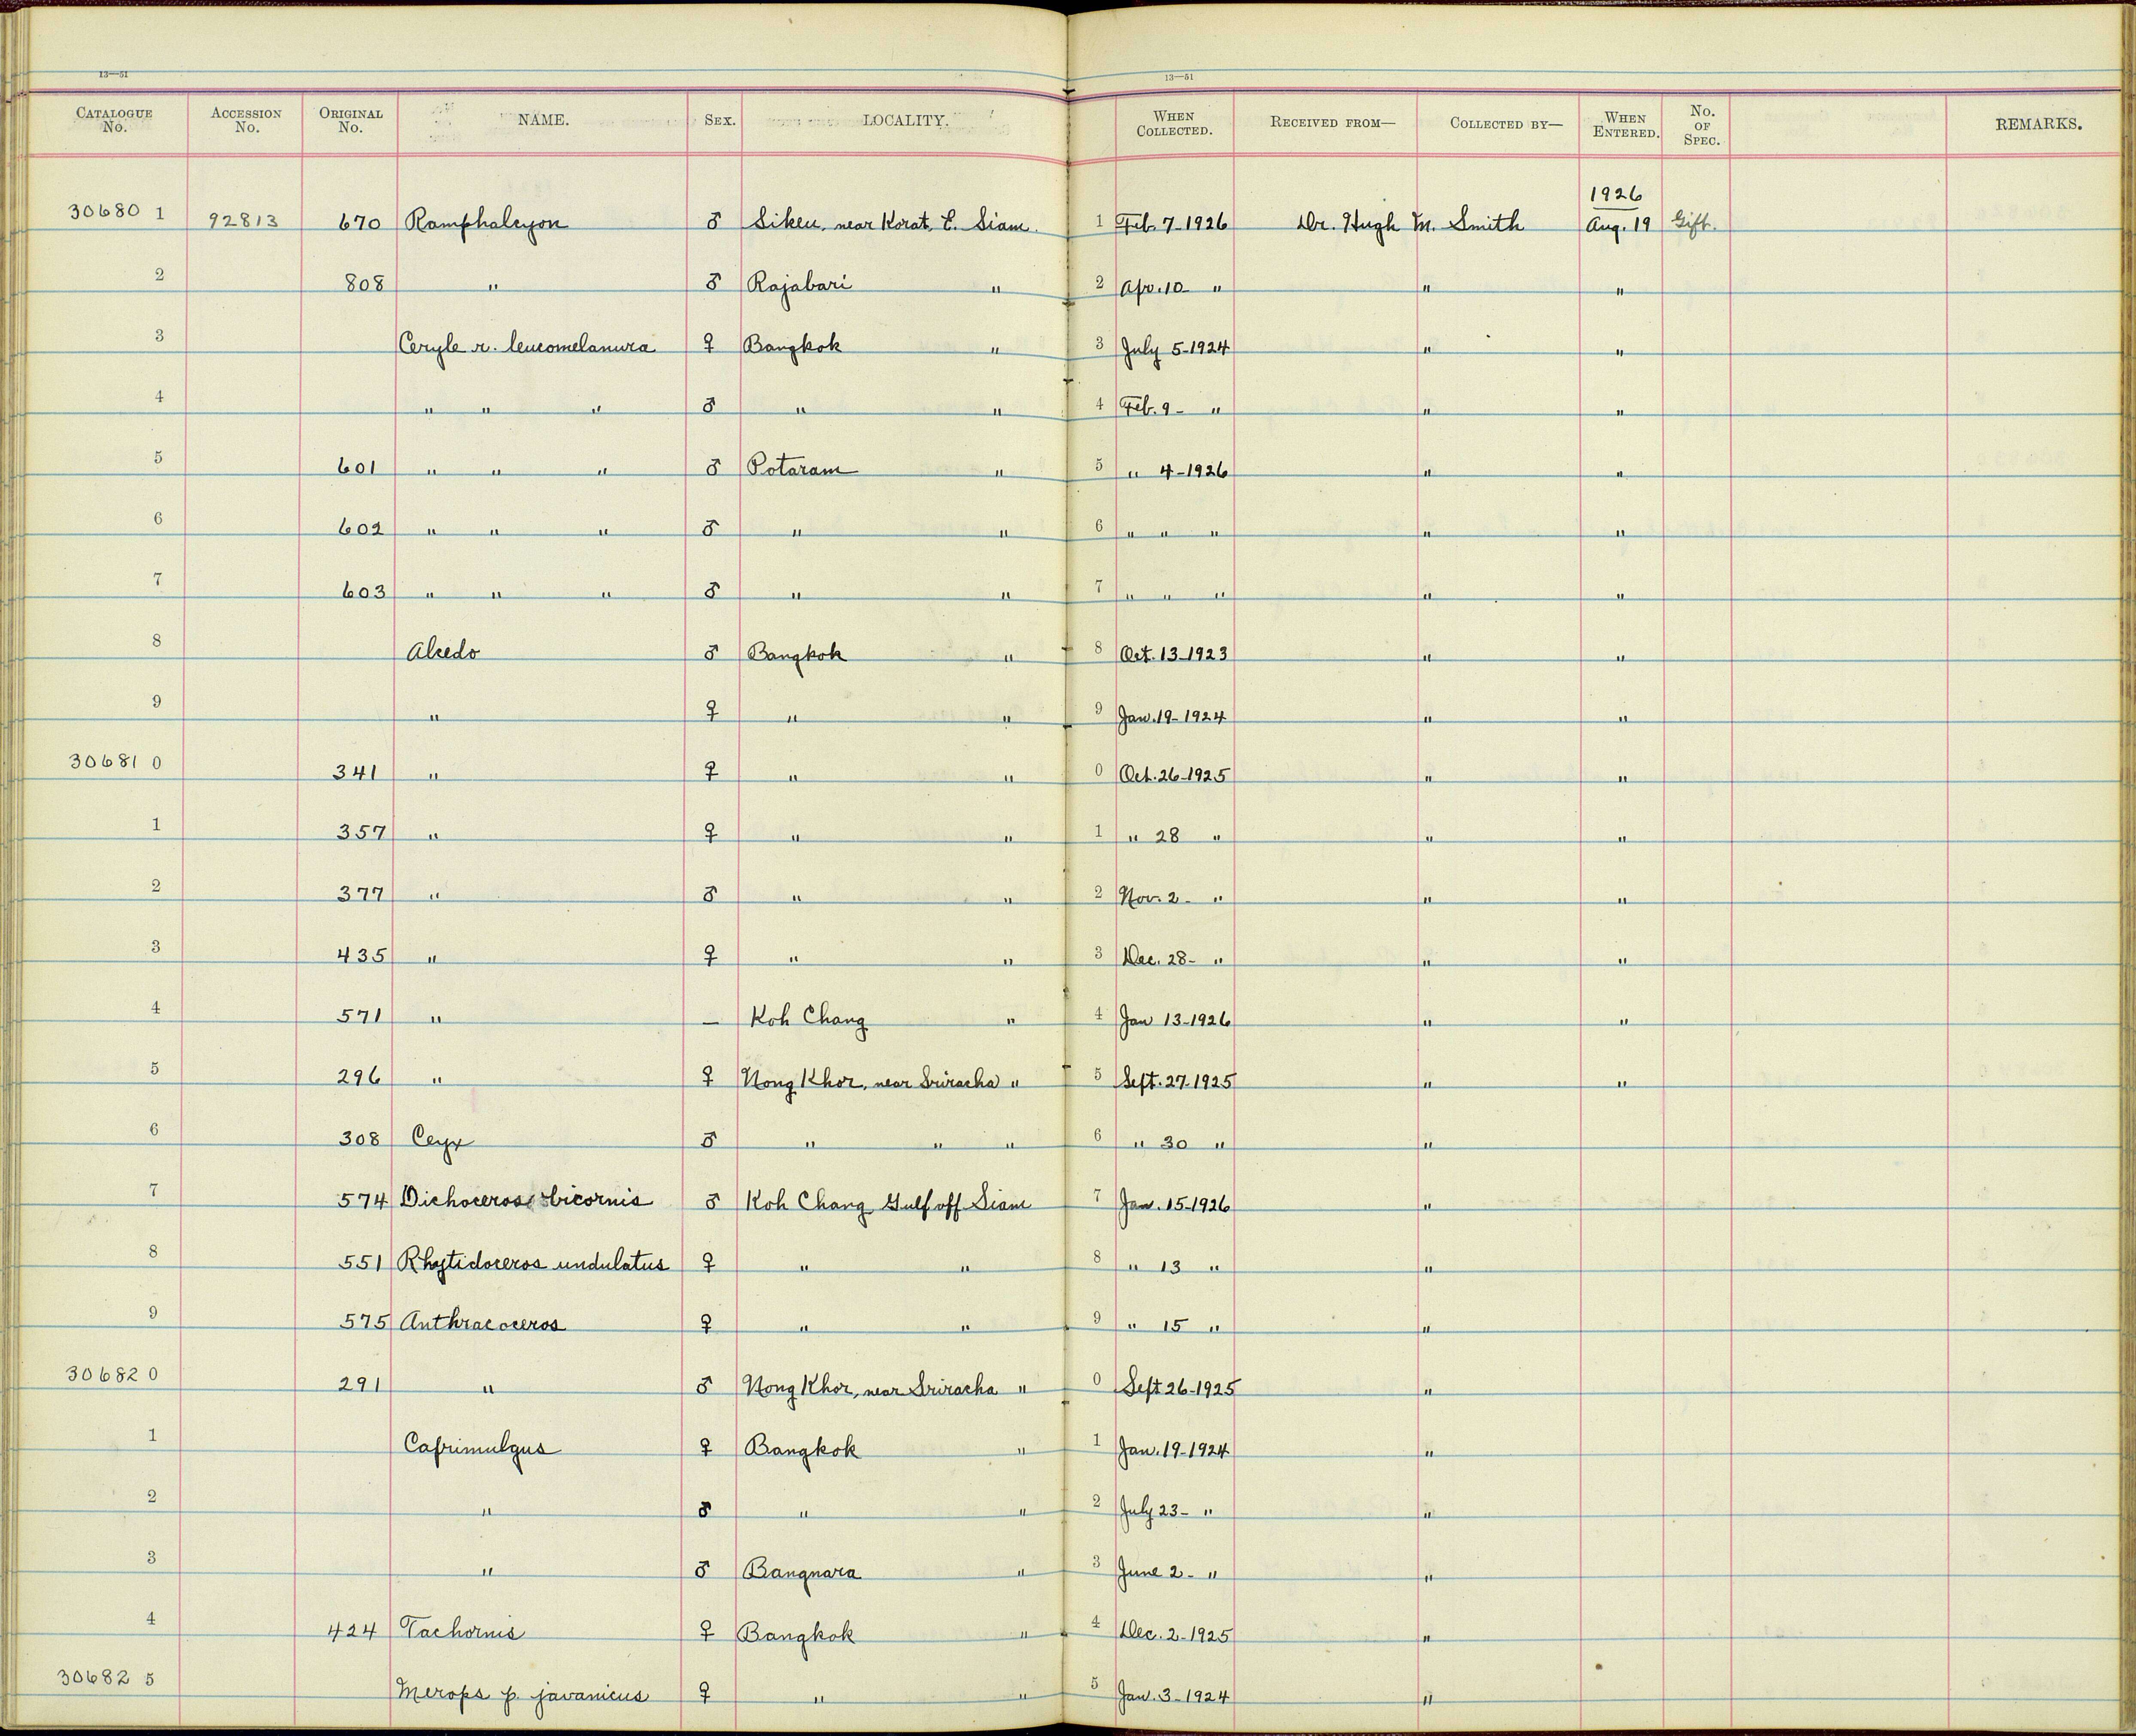 13—51 13—51
CATALOGUE No. ACCESSION No. ORIGINAL No. NAME. SEX. LOCALITY. WHEN COLLECTED. RECEIVED FROM— COLLECTED BY— WHEN ENTERED. No. OF SPEC. REMARKS.
1926
30680 1 92813 670 Ramphalcyon ♂ Siken, near Korat, E. Siam. 1 Feb. 7-1926 Dr. Hugh M. Smith Aug. 19 Gift.
2 808 " ♂ Rajabari " 2 Apr. 10 " " "
3 Ceryle r. leucomelanura ♀ Bangkok " 3 July 5-1924 " "
4 " " " ♂ " " 4 Feb. 9- " " "
5 601 " " " ♂ Potaram " 5 " 4-1926 " "
6 602 " " " ♂ " " 6 " " " " "
7 603 " " " ♂ " " 7 " " " " "
8 Alcedo ♂ Bangkok " 8 Oct. 13-1923 " "
9 " ♀ " " 9 Jan. 19-1924 " "
30681 0 341 " ♀ " " 0 Oct. 26-1925 " "
1 357 " ♀ " " 1 " 28 " " "
2 377 " ♂ " " 2 Nov. 2- " " "
3 435 " ♀ " " 3 Dec. 28- " " "
4 571 " — Koh Chang " 4 Jan 13-1926 " "
5 296 " ♀ Nong Khor, near Sriracha " 5 Sept. 27-1925 " "
6 308 Ceyx ♂ " " " 6 " 30 " "
7 574 Dichoceros bicornis ♂ Koh Chang Gulf off Siam 7 Jan. 15-1926 "
8 551 Rhytidoceros undulatus ♀ " " 8 " 13 " "
9 575 Anthracoceros ♀ " " 9 " 15 " "
30682 0 291 " ♂ Nong Khor, near Sriracha " 0 Sept 26-1925 "
1 Caprimulgus ♀ Bangkok " 1 Jan. 19-1924 "
2 " ♂ " " 2 July 23- " "
3 " ♂ Bangnara " 3 June 2- " "
4 424 Tachornis ♀ Bangkok " 4 Dec. 2-1925 "
30682 5 Merops p. javanicus ♀ " " 5 Jan. 3-1924 "